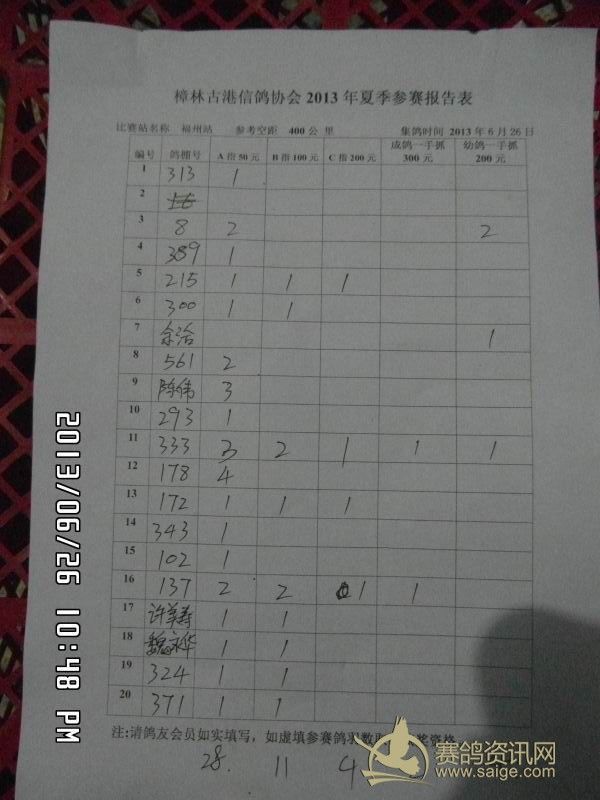 樟林古港信鸽协会 2013 年夏季参赛报告表
比赛站名称 福州站 参考空距 400 公 里 集鸽时间 2013 年 6 月 26 日
编号 鸽棚号 A 指 50 元 B 指 100 元 C 指 200 元 成鸽一手抓 300 元 幼鸽一手抓 200 元
1 313 1
2
3 8 2 2
4 389 1
5 215 1 1 1
6 300 1 1
7 1
8 561 2
9 陈伟 3
10 293 1
11 333 3 2 1 1 1
12 178 4
13 172 1 1 1
14 343 1
15 102 1
16 137 2 2 1 1
17 1 1
18 魏永华 1 1
19 324 1 1
20 371 1 1
注:请鸽友会员如实填写，如虚填参赛鸽羽数 奖资格
28. 11 4
2013/06/26 10:48 PM
赛鸽资讯网
www.saige.com